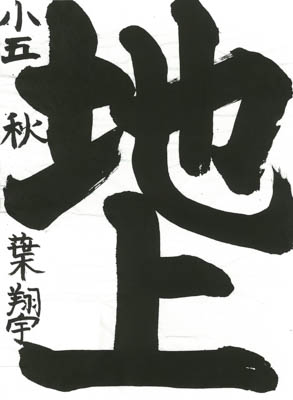 地上
小五 秋葉翔宇